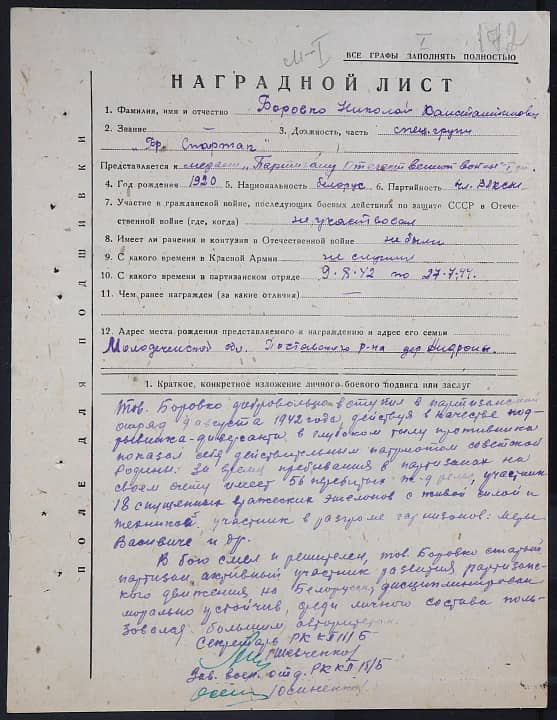 М-I
I
172
ВСЕ ГРАФЫ ЗАПОЛНЯТЬ ПОЛНОСТЬЮ
НАГРАДНОЙ ЛИСТ
1. Фамилия, имя и отчество Боровко Николай Константинович
2. Звание — 3. Должность, часть спец. групп
"Бр. Спартак"
Представляется к медали "Партизану Отечественной войны" I ст.
4. Год рождения 1920 5. Национальность белорус 6. Партийность чл. ВЛКСМ
7. Участие в гражданской войне, последующих боевых действиях по защите СССР в Отече-
ственной войне (где, когда) не участвовал
8. Имеет ли ранения и контузия в Отечественной войне не были
9. С какого времени в Красной Армии не служил
10. С какого времени в партизанском отряде 9.8.42 по 27.7.44.
11. Чем ранее награжден (за какие отличия) —
12. Адрес места рождения представляемого к награждению и адрес его семьи
Молодеченской обл. Поставского р-на дер.
1. Краткое, конкретное изложение личного боевого подвига или заслуг
Тов. Боровко добровольно вступил в партизанский
отряд 9 августа 1942 года, действуя в качестве под-
рывника-диверсанта в глубоком тылу противника
показал себя действительным патриотом советской
Родины: За время пребывания в партизанах на
своем счету имеет 56 перебитых ж-д рельс, участник
18 спущенных вражеских эшелонов с живой силой и
техникой, участник в разгроме гарнизонов:
и др.
В бою смел и решителен, тов. Боровко старый
партизан, активный участник развития партизанс-
кого движения на Белоруси, дисциплинирован
морально устойчив, среди личного состава поль-
зовался большим авторитетом.
Секретарь РК КП/б/Б
/Шевченко/
Зав. воен. отд. РК КП/б/Б
/Осиненко/
ПОЛЕ ДЛЯ ПОДШИВКИ